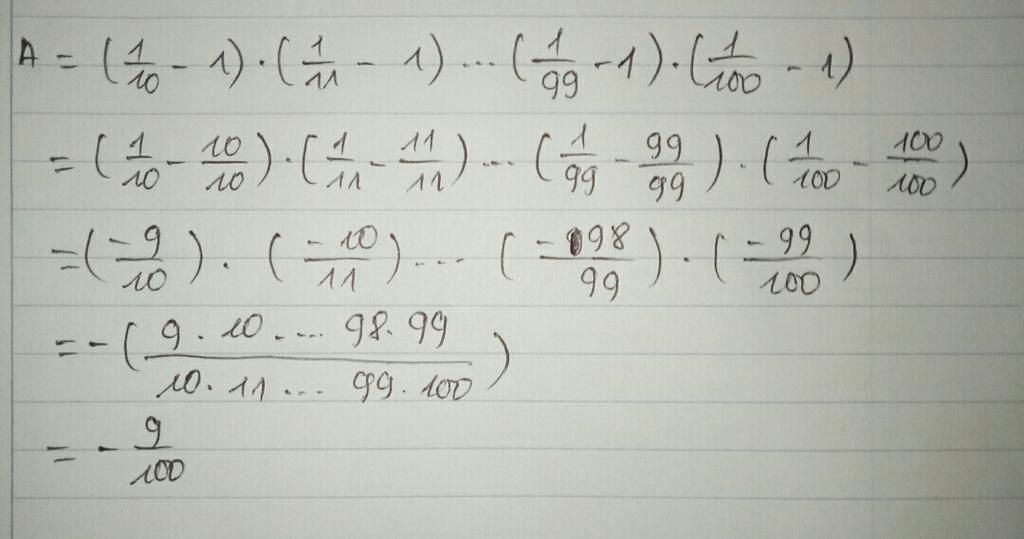 A = (1/10 - 1) · (1/11 - 1) ... (1/99 - 1) · (1/100 - 1)
= (1/10 - 10/10) · (1/11 - 11/11) ... (1/99 - 99/99) · (1/100 - 100/100)
= (-9/10) · (-10/11) ... (-98/99) · (-99/100)
= - (9 · 10 · ... 98 · 99 / 10 · 11 ... 99 · 100)
= - 9/100